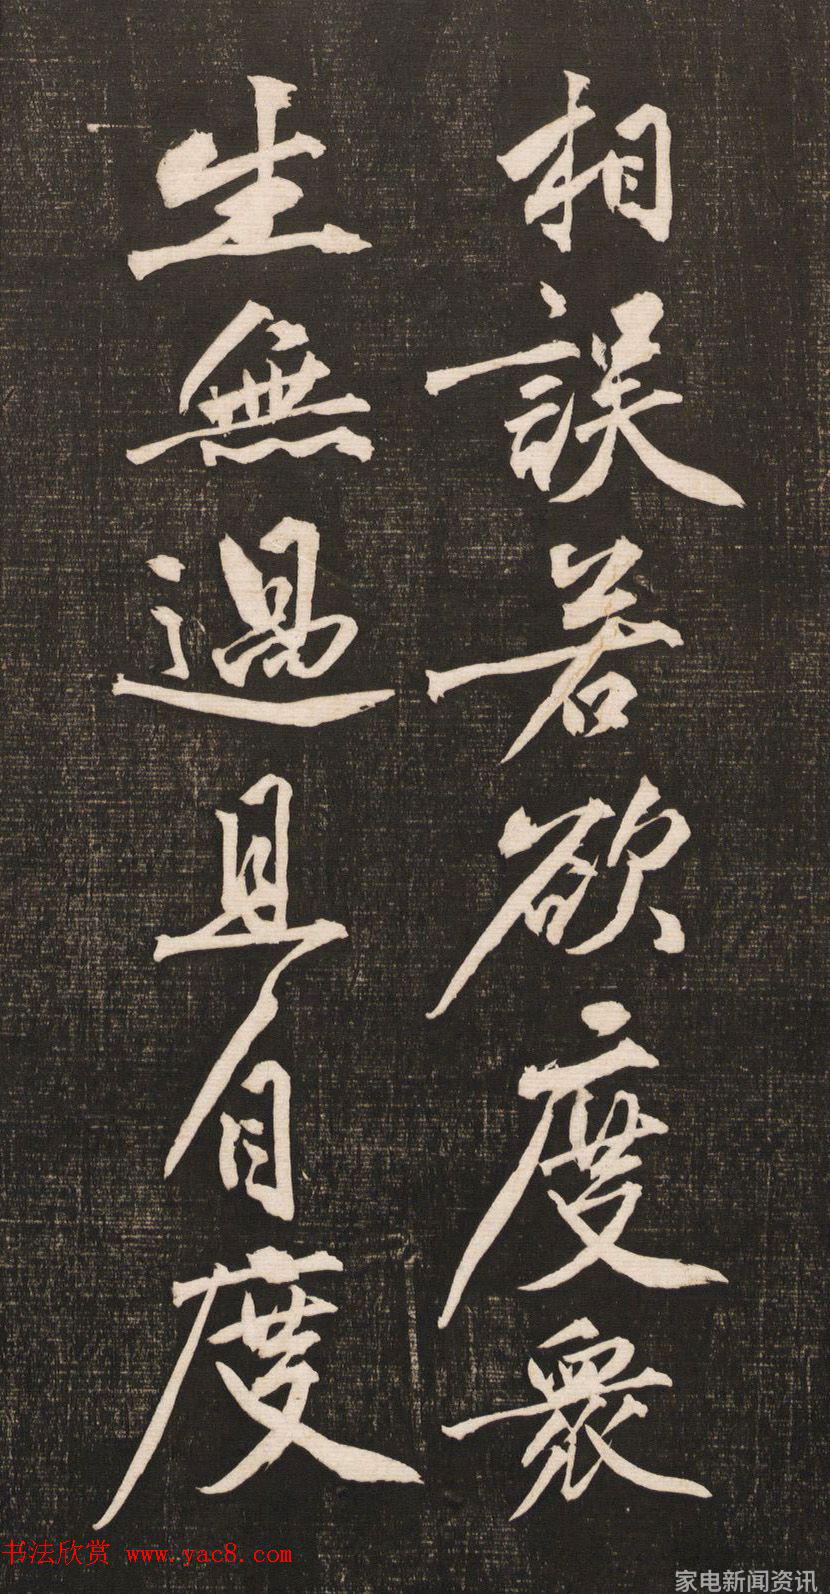 相誤若欲度衆
生無過且自度
书法欣赏 www.yac8.com
家电新闻资讯